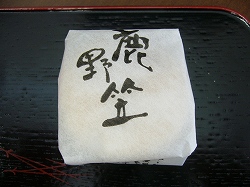 鹿野笠